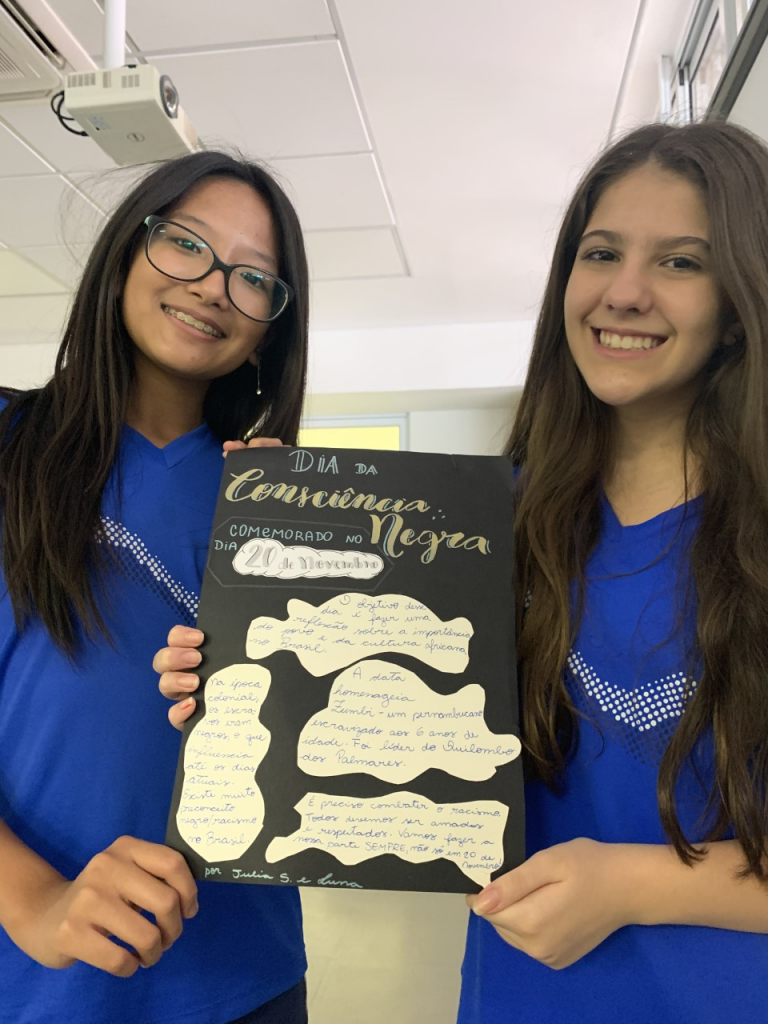 DIA DA
Consciência
Negra
COMEMORADO NO
DIA 20 de Novembro
O objetivo desse
dia é fazer uma
reflexão sobre a importância
do povo e da cultura africana
no Brasil.
Na época
colonial,
os escra-
vos eram
negros, o que
influencia
até os dias
atuais.
Existe muito
preconceito
negro/racismo
no Brasil.
A data
homenageia
Zumbi - um pernambucano
escravizado aos 6 anos de
idade. Foi líder do Quilombo
dos Palmares.
É preciso combater o racismo.
Todos devemos ser amados
e respeitados. Vamos fazer a
nossa parte SEMPRE, não só em 20 de
Novembro!
por Julia S. e Luna